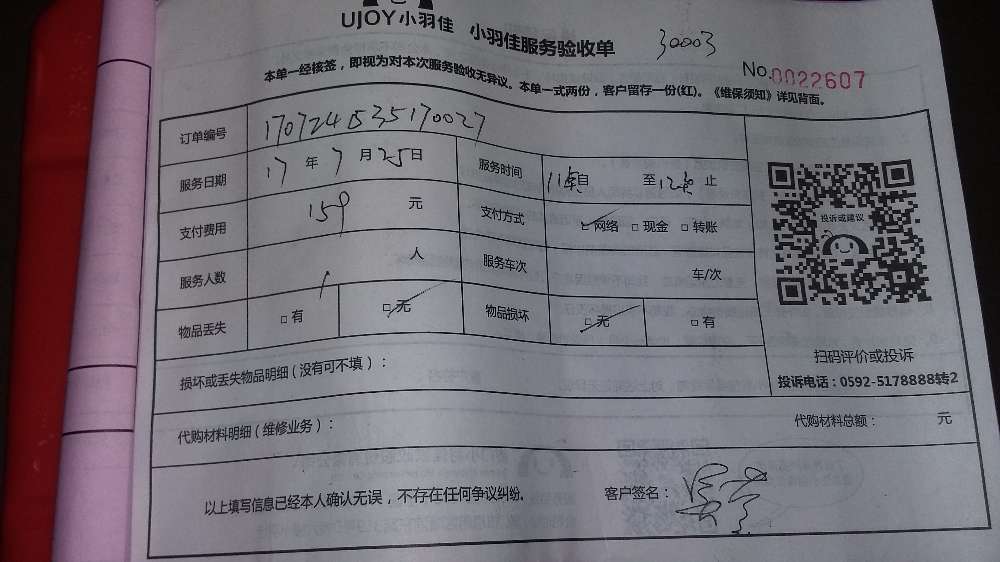 UJOY小羽佳 小羽佳服务验收单 30003
No.0022607
本单一经核签，即视为对本次服务验收无异议。本单一式两份，客户留存一份(红)。《维保须知》详见背面。
订单编号 170724535170027
服务日期 17年7月25日 服务时间 11点自 至12点止
支付费用 159元 支付方式 ☑网络 □现金 □转账
服务人数 1人 服务车次 车/次
物品丢失 □有 ☑无 物品损坏 ☑无 □有
投诉或建议
扫码评价或投诉
投诉电话：0592-5178888转2
损坏或丢失物品明细(没有可不填)：
代购材料明细(维修业务)： 代购材料总额： 元
以上填写信息已经本人确认无误，不存在任何争议纠纷. 客户签名：